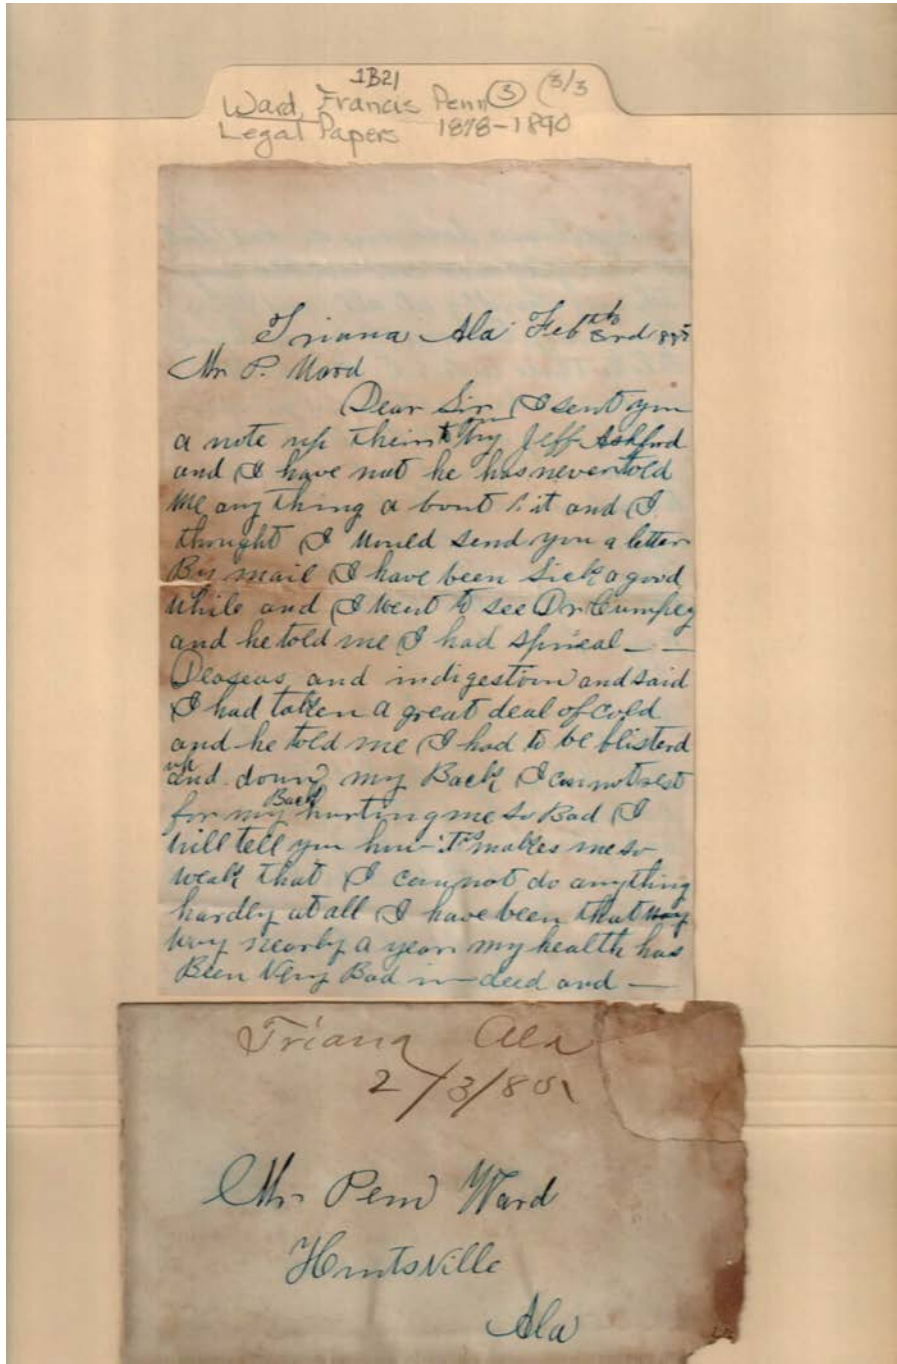 1B21
Ward, Francis Penn ③ (3/3
Legal Papers 1878-1890
Triana Ala Feb 3rd
Mr P. Ward
Dear Sir I sent you
a note up their by Jeff Ashford
and I have not he has never told
me any thing a bout it and I
thought I would send you a letter
By mail I have been Sick a good
while and I went to see Dr
and he told me I had spineal
Deaseas and indigestion and said
I had taken a great deal of cold
and he told me I had to be blisterd
up and down my Back I can not rest
for my Back hurting me so Bad I
will tell you how it makes me so
weak that I can not do anything
hardly at all I have been that way
way nearly a year my health has
Been Very Bad in deed and —
Triana Ala
2/3/85
Mr Penn Ward
Huntsville
Ala